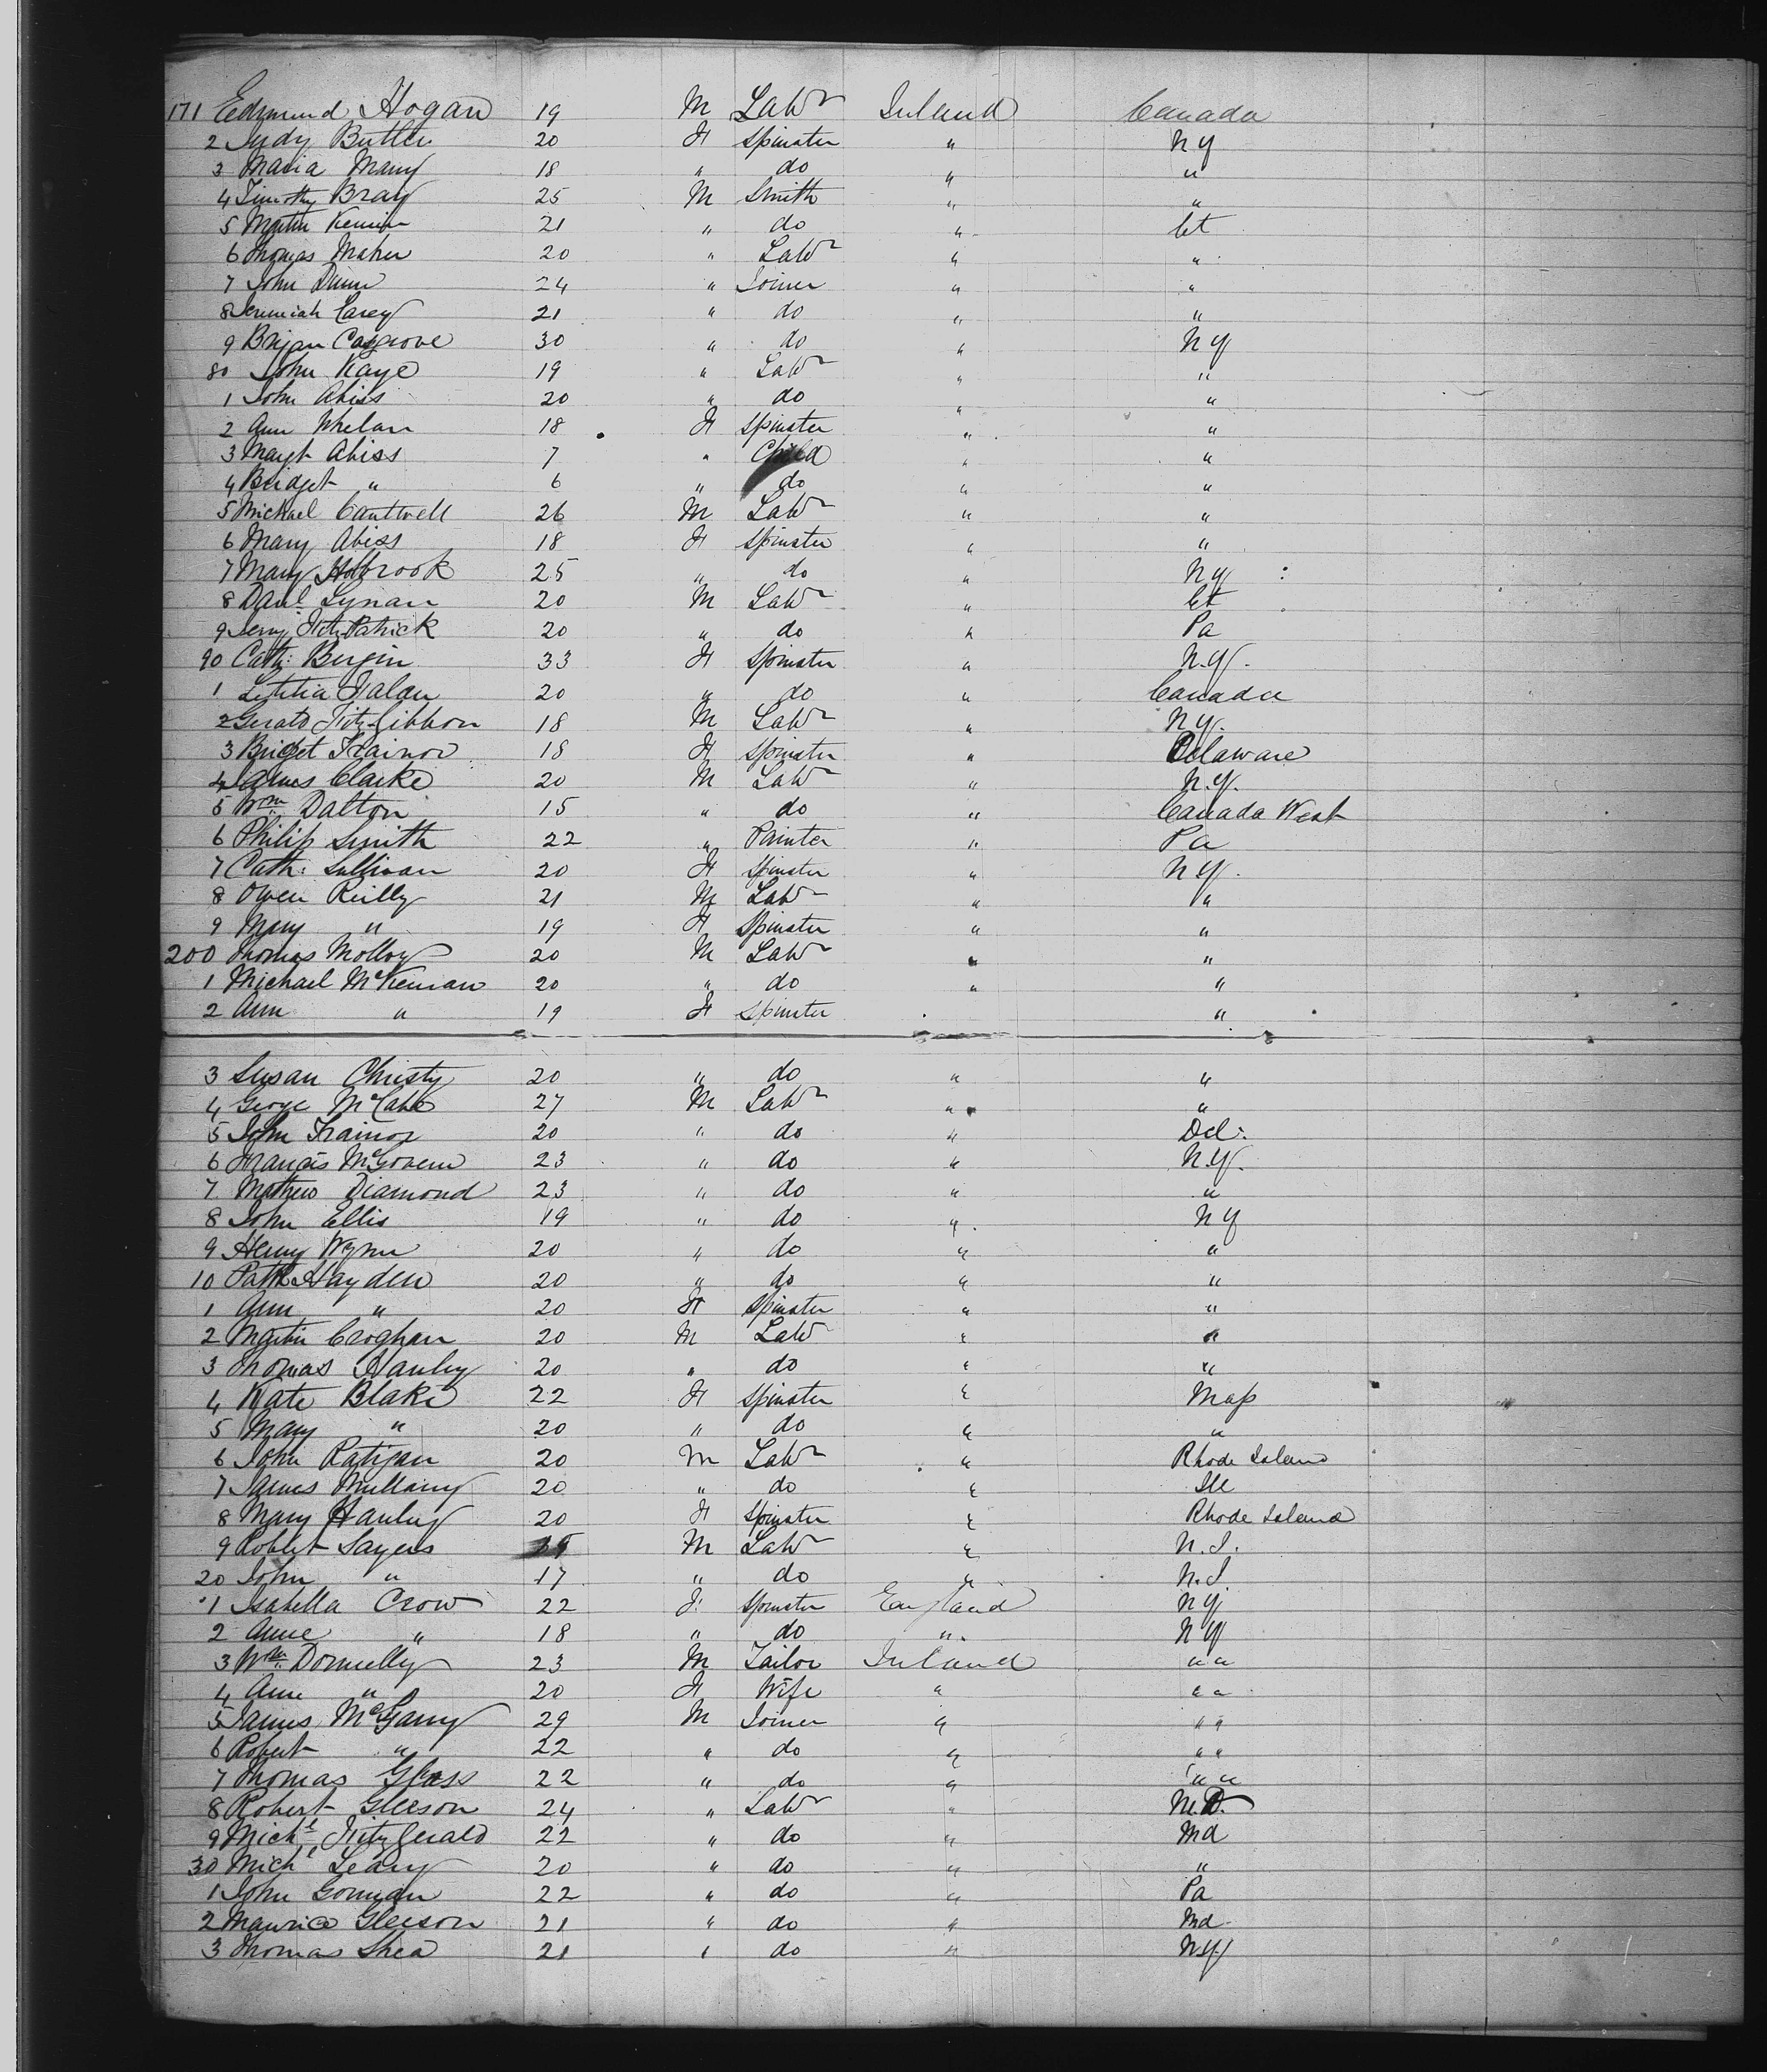 171 Edmund Hogan 19 M Labr Ireland Canada
2 Judy Butler 20 F Spinster " NY
3 Maria Many 18 " do " "
4 Timothy Bray 25 M Smith " "
5 Martin 21 " do " Ct
6 Thomas Maher 20 " Labr " "
7 John Dunn 24 " Joiner " "
8 Jeremiah Carey 21 " do " "
9 Bryan Cosgrove 30 " do " NY
80 John Kaye 19 " Labr " "
1 John Abiss 20 " do " "
2 Ann Whelan 18 F Spinster " "
3 Margt Abiss 7 " Child " "
4 Bridget " 6 " do " "
5 Michael Cantwell 26 M Labr " "
6 Mary Abiss 18 F Spinster " "
7 Mary Holbrook 25 " do " NY
8 Danl Lynan 20 M Labr " Ct
9 Jerry FitzPatrick 20 " do " Pa
90 Cath: Bergin 33 F Spinster " N.Y.
1 Letitia Falan 20 " do " Canada
2 Gerald FitzGibbon 18 M Labr " NY.
3 Bridget Trainor 18 F Spinster " Delaware
4 James Clarke 20 M Labr " N.Y.
5 Wm Dalton 15 " do " Canada West
6 Philip Smith 22 " Painter " Pa
7 Cath: Sullivan 20 F Spinster " NY.
8 Owen Reilly 21 M Labr " "
9 Mary " 19 F Spinster " "
200 Thomas Molloy 20 M Labr " "
1 Michael McKernan 20 " do " "
2 Ann " 19 F Spinster "
3 Susan Christy 20 " do " "
4 George McCabe 27 M Labr " "
5 John Trainor 20 " do " Del:
6 Francis McGovern 23 " do " N.Y.
7 Mathew Diamond 23 " do " "
8 John Ellis 19 " do " NY
9 Henry Wynn 20 " do " "
10 Patk Hayden 20 " do " "
1 Ann " 20 F Spinster " "
2 Martin Croghan 20 M Labr " "
3 Thomas Hanley 20 " do " "
4 Kate Blake 22 F Spinster " Mass
5 Mary " 20 " do " "
6 John Ratigan 20 M Labr " Rhode Island
7 James Mullany 20 " do " Ill
8 Mary Hanley 20 F Spinster " Rhode Island
9 Robert Sayers M Labr " N.J.
20 John " 17 " do " N.J
1 Isabella Crow 22 F Spinster England NY
2 Anne " 18 " do " NY
3 Wm Donnelly 23 M Tailor Ireland " "
4 Ann " 20 F Wife " " "
5 James McGarry 29 M Joiner " " "
6 Robert " 22 " do " " "
7 Thomas Glass 22 " do " " "
8 Robert Gleeson 24 " Labr " M.D.
9 Michl FitzGerald 22 " do " Md
30 Michl Leary 20 " do " "
1 John Gorman 22 " do " Pa
2 Maurice Gleeson 21 " do " Md.
3 Thomas Shea 21 " do " NY